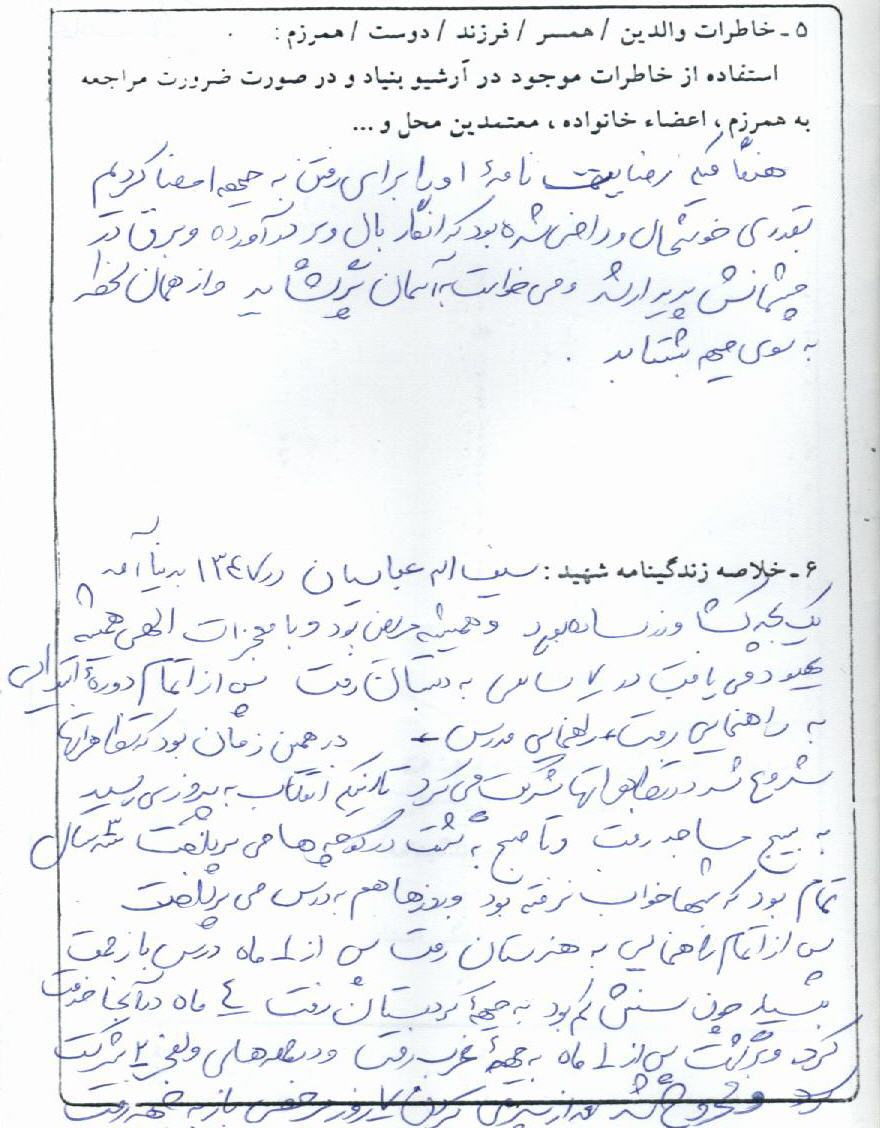 ۵ ـ خاطرات والدین / همسر / فرزند / دوست / همرزم :
استفاده از خاطرات موجود در آرشیو بنیاد و در صورت ضرورت مراجعه
به همرزم ، اعضاء خانواده ، معتمدین محل و ...
هنگامیکه رضایت نامهٔ او را برای رفتن به جبهه امضا کردیم
بقدری خوشحال و راضی شده بود که انگار بال و پر درآورده و برق در
چشمانش پدیدار شد و می خواست به آسمان پر گشاید و از همان لحظه
به سوی جبهه بشتابد .
۶ ـ خلاصه زندگینامه شهید : سیف اله عباسیان در ۱۳۴۷ بدنیا آمد
یک بچه کشاورز ساده بود و همیشه مریض بود و با معجزات الهی همیشه
بهبود می یافت در ۷ سالگی به دبستان رفت پس از اتمام دورهٔ ابتدایی
به راهنمایی رفت راهنمایی مدرس در همین زمان بود که تظاهراتها
شروع شد در تظاهراتها شرکت می کرد تا اینکه انقلاب به پیروزی رسید
به بسیج مساجد رفت و تا صبح به گشت در کوچه ها می پرداخت ۳ سال
تمام بود که شبها خواب نرفته بود و روزها هم به درس می پرداخت
پس از اتمام راهنمایی به هنرستان رفت پس از ماه درس باز گشت
چون سنش کم بود به جبههٔ کردستان رفت ۴ ماه در آنجا خدمت
کرد و برگشت پس از ماه به جبههٔ غرب رفت و در والفجر ۲ شرکت
کرد و مجروح شد بعد از سپری کردن روز مرخصی باز به جبهه رفت